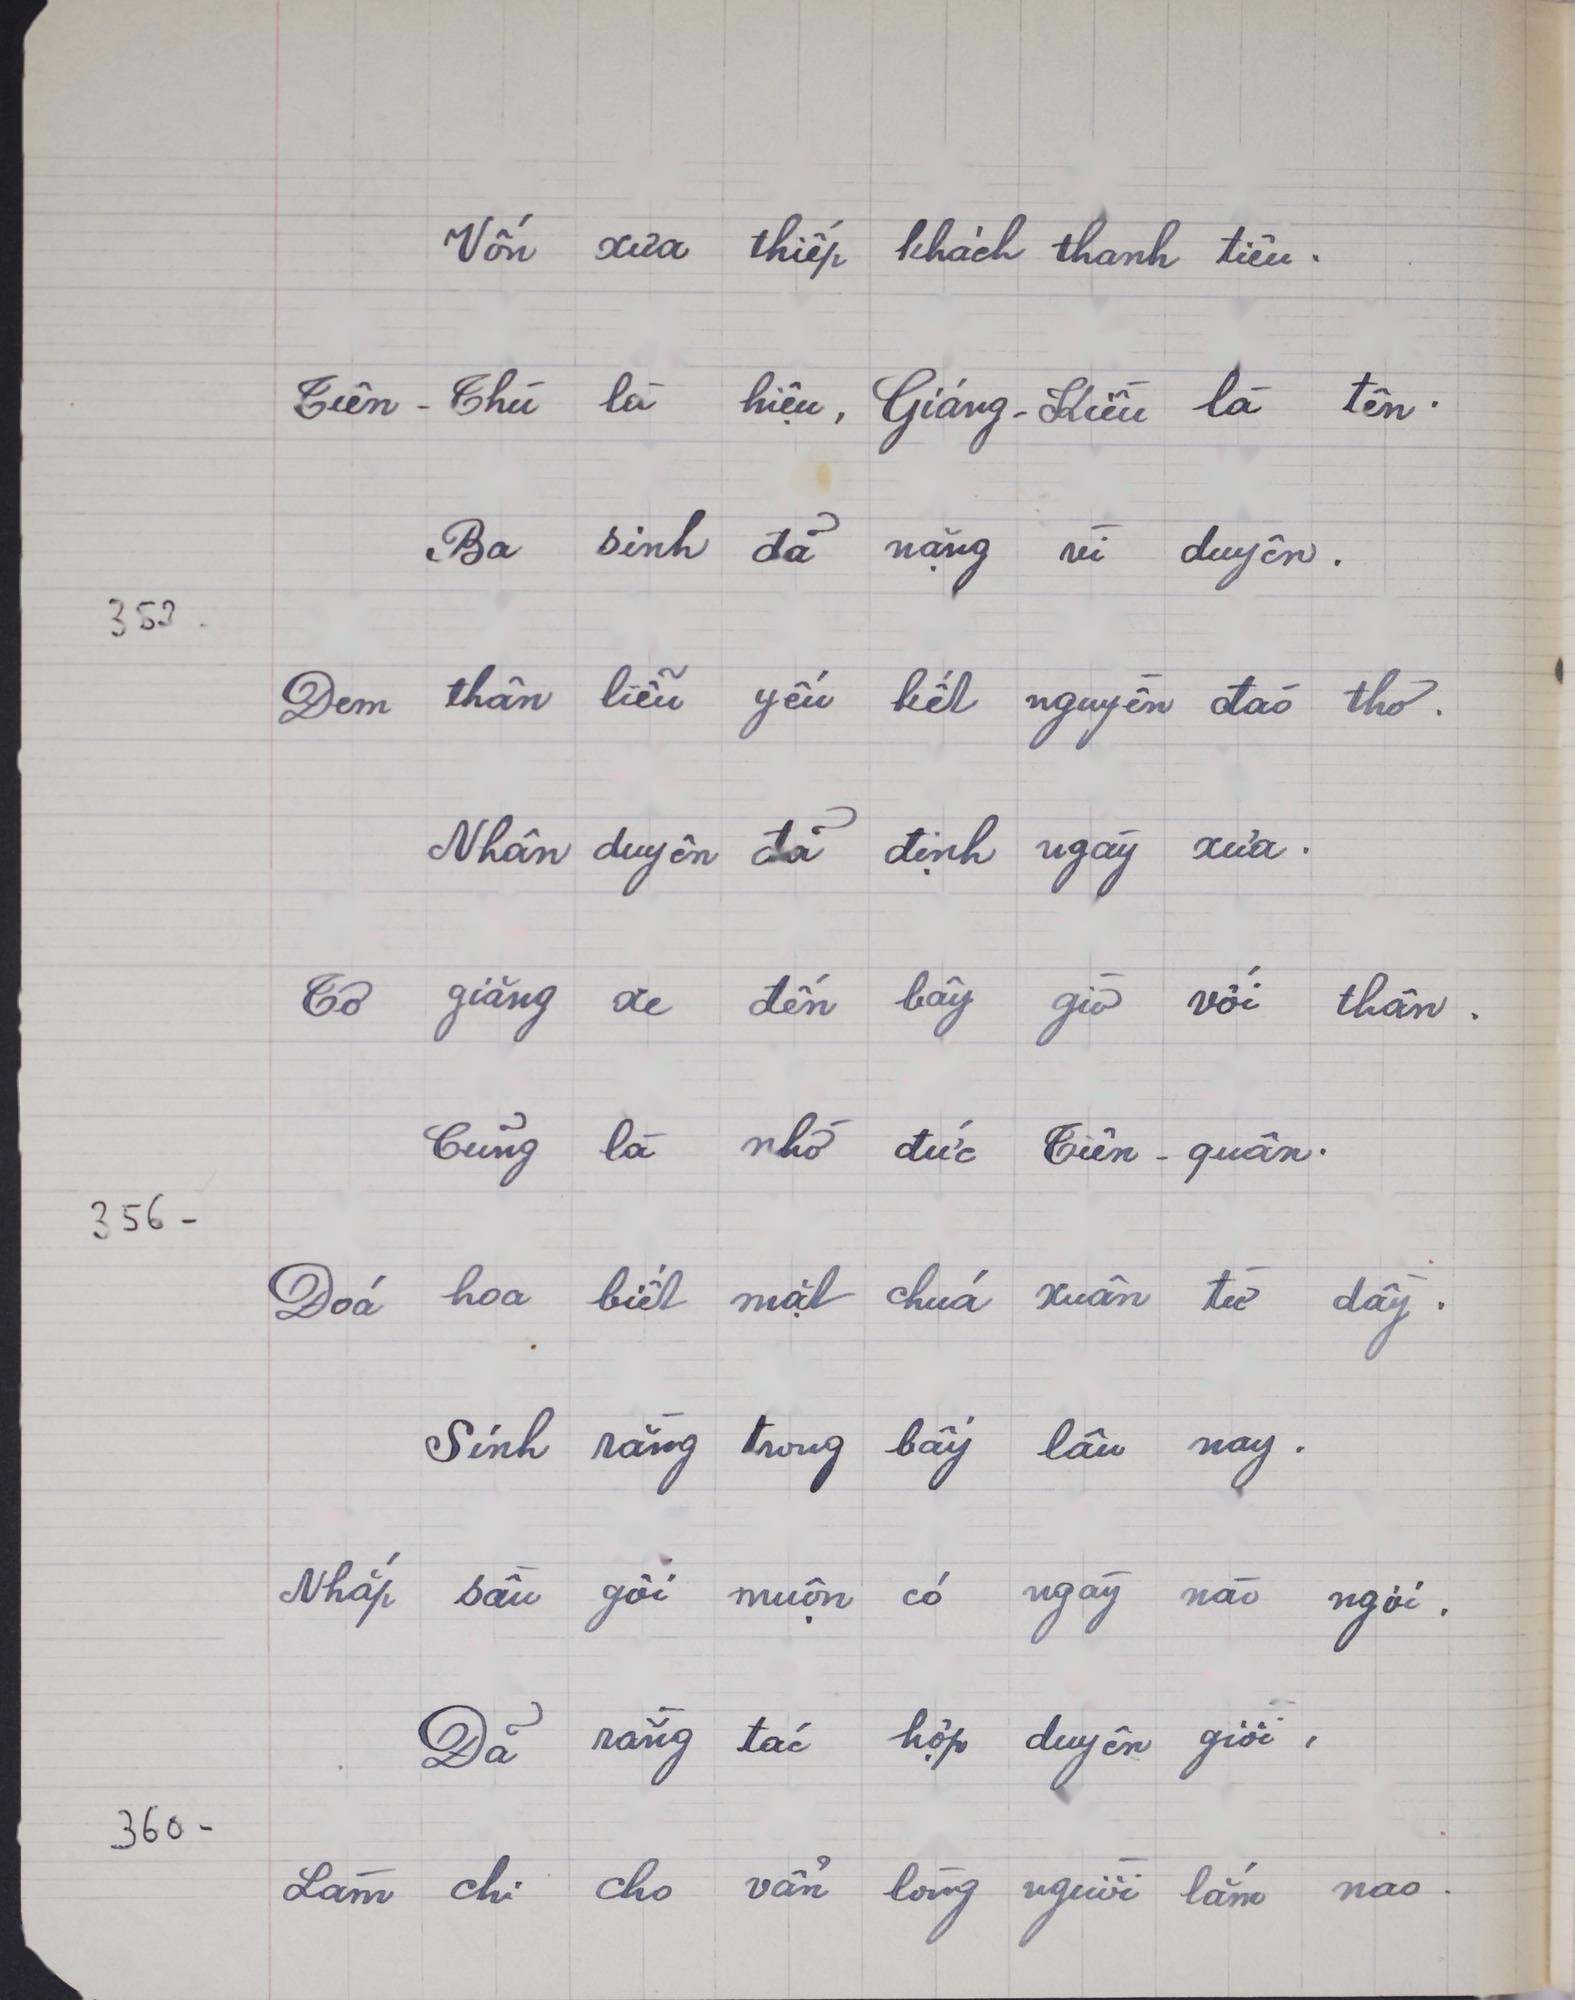 Vốn xưa thiếp khách thanh tiêu.
Tiên - Thù là hiệu, Giáng - Kiều là tên.
Ba sinh đả nặng vì duyên.
352.
Dem thân liễu yếu kết nguyền đào thơ.
Nhân duyên đả định ngày xưa.
Tơ giăng xe đến bây giờ với thân.
Cũng là nhờ đức Tiên - quân.
356 -
Doá hoa biết mặt chuá xuân từ dầy.
Sinh rằng trong bấy lâu nay.
Nhấp sầu gối muộn có ngày nào ngơi.
Dả rằng tác hợp duyên giời,
360 -
Làm chi cho vẩn lòng người lắm nao.